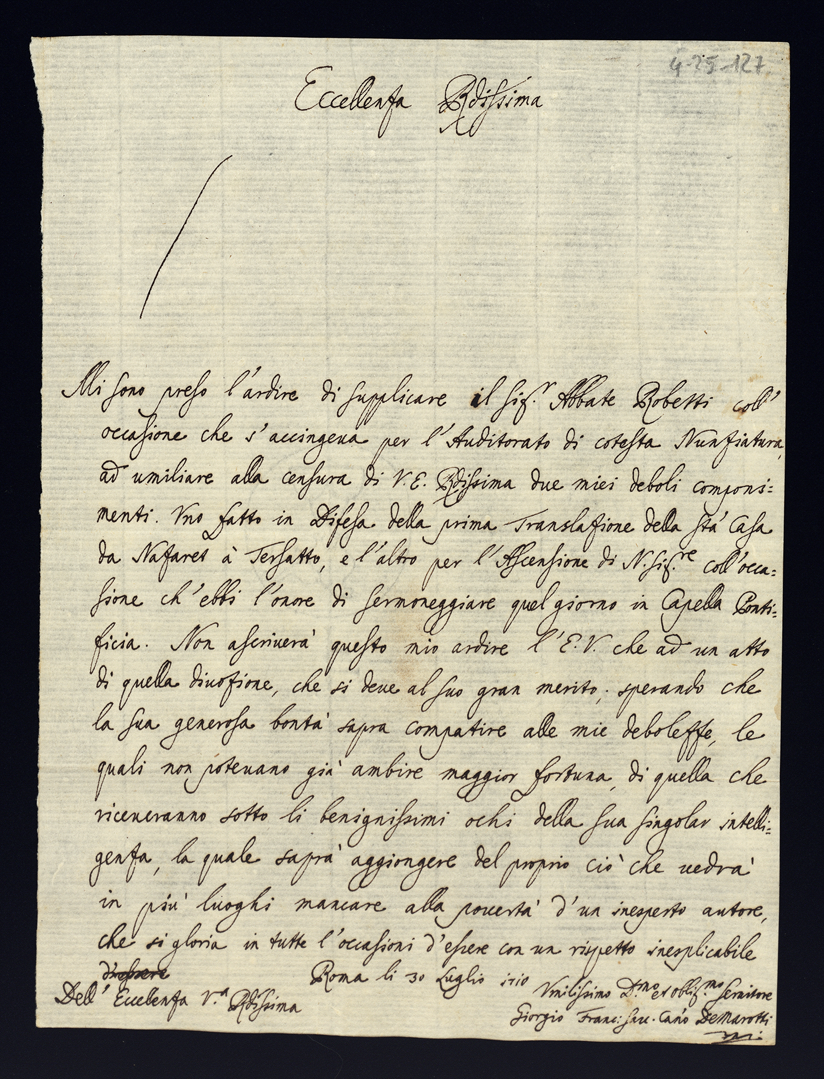 4-25-127
Eccellenza Rdissima
Mi sono preso l'ardire di supplicare il Sig.r Abbate Robetti coll'
occasione che s'accingeua per l'Auditorato di cotesta Nunziatura,
ad umiliare alla censura di V.E. Rdissima due miei deboli componi=
menti. Vno fatto in Difesa della prima Translazione della Sta Casa
da Nazaret à Tersatto, e l'altro per l'Ascensione di N. Sig.re coll'occa=
sione ch'ebbi l'onore di sermoneggiare quel giorno in Capella Ponti=
ficia. Non ascriuerà questo mio ardire l'E.V. che ad un atto
di quella diuozione, che si deue al suo gran merito; sperando che
la sua generosa bontà saprà compatire alle mie debolezze, le
quali non poteuano già ambire maggior fortuna, di quella che
riceueranno sotto li benignissimi ochi della sua singolar intelli=
genza, la quale saprà aggiongere del proprio ciò che uedrà
in più luoghi mancare alla pouertà d'un inesperto autore,
che si gloria in tutte l'occasioni d'essere con un rispetto inesplicabile
d'essere
Roma li 30 Luglio 1710
Dell' Eccellenza V.a Rdissima
Vmilissimo D.mo et oblig.mo Seruitore
Giorgio Franc. Sau. Can.o DeMarotti